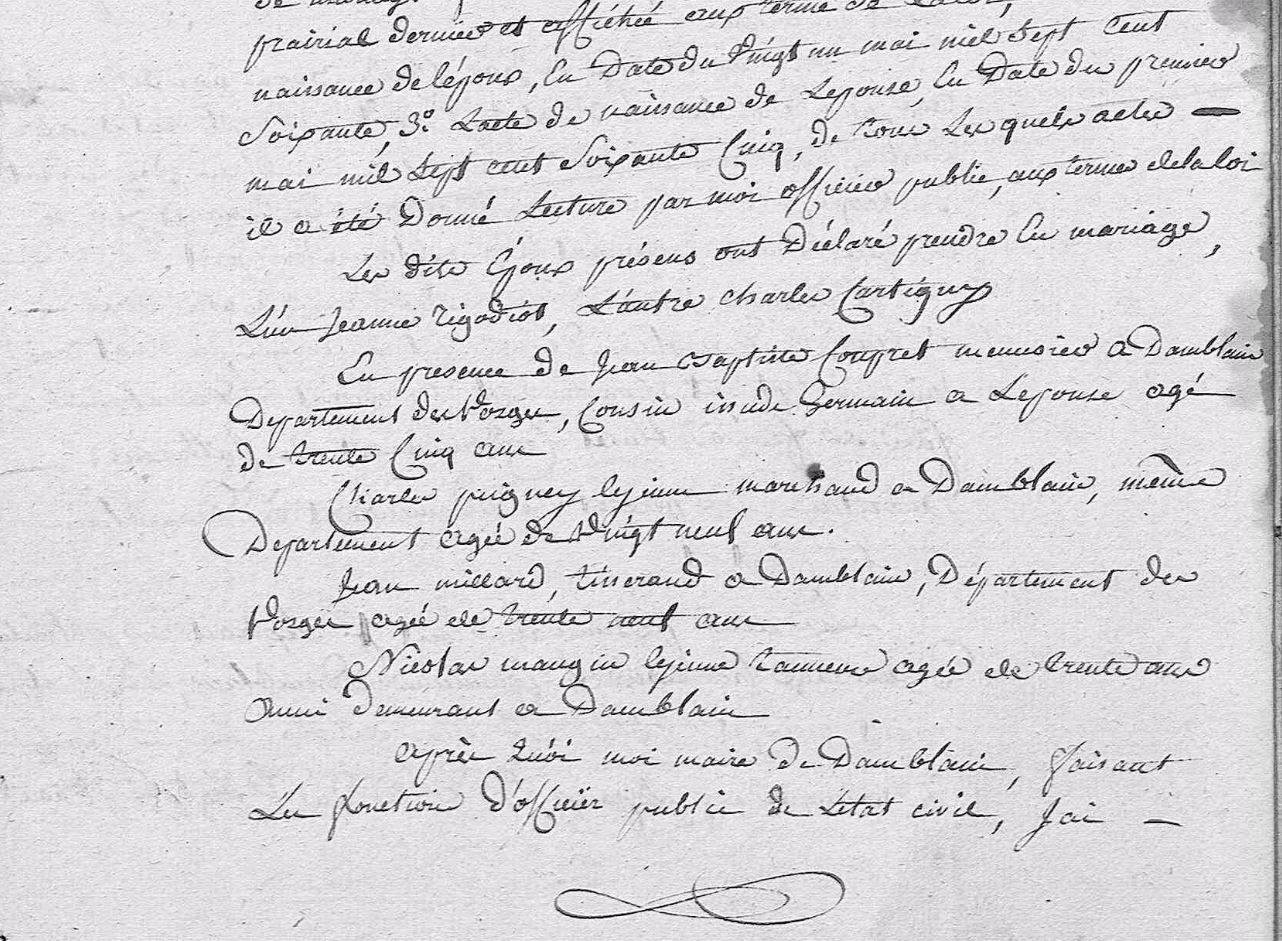 prairial dernier et affichée aux terme de la loi,
naissance de lépoux, En Date du Vingt un mai mil Sept Cent
Soixante, 3.° Lacte de naissance de Lepouse, En Date du premier
mai mil Sept cent Soixante Cinq, de tous Les quels actes —
il a été Donné Lecture par moi officier public, aux termes de la loi
Les dits Epoux présens ont Déclaré prendre En mariage,
L'un Jeanne rigodiot, L'autre Charles Cartigny
En presence de Jean Baptiste Coupret menusier a Damblain
Departement des Vosges, Cousin issude Germain a Lepouse agé
de trente Cinq ans
Charles puigney lejeune marchand a Damblain, même
Departement agée de Vingt neuf ans.
Jean millard, tisserand a Damblain, Département des
Vosges agée de trente neuf ans
Nicolas maugin lejeune tanneur agée de trente ans
Aussi demeurant a Damblain
après Quoi moi maire de Damblain, faisant
Les fonction d'officier public de Létat civil, Jai —